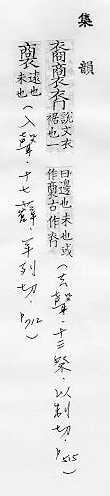 集韻
裔 說文衣裾也一曰邊也末也或作 古作 (去聲.十三祭.以制切.P515)
遠也末也 (入聲.十七薛.羊列切.P712)